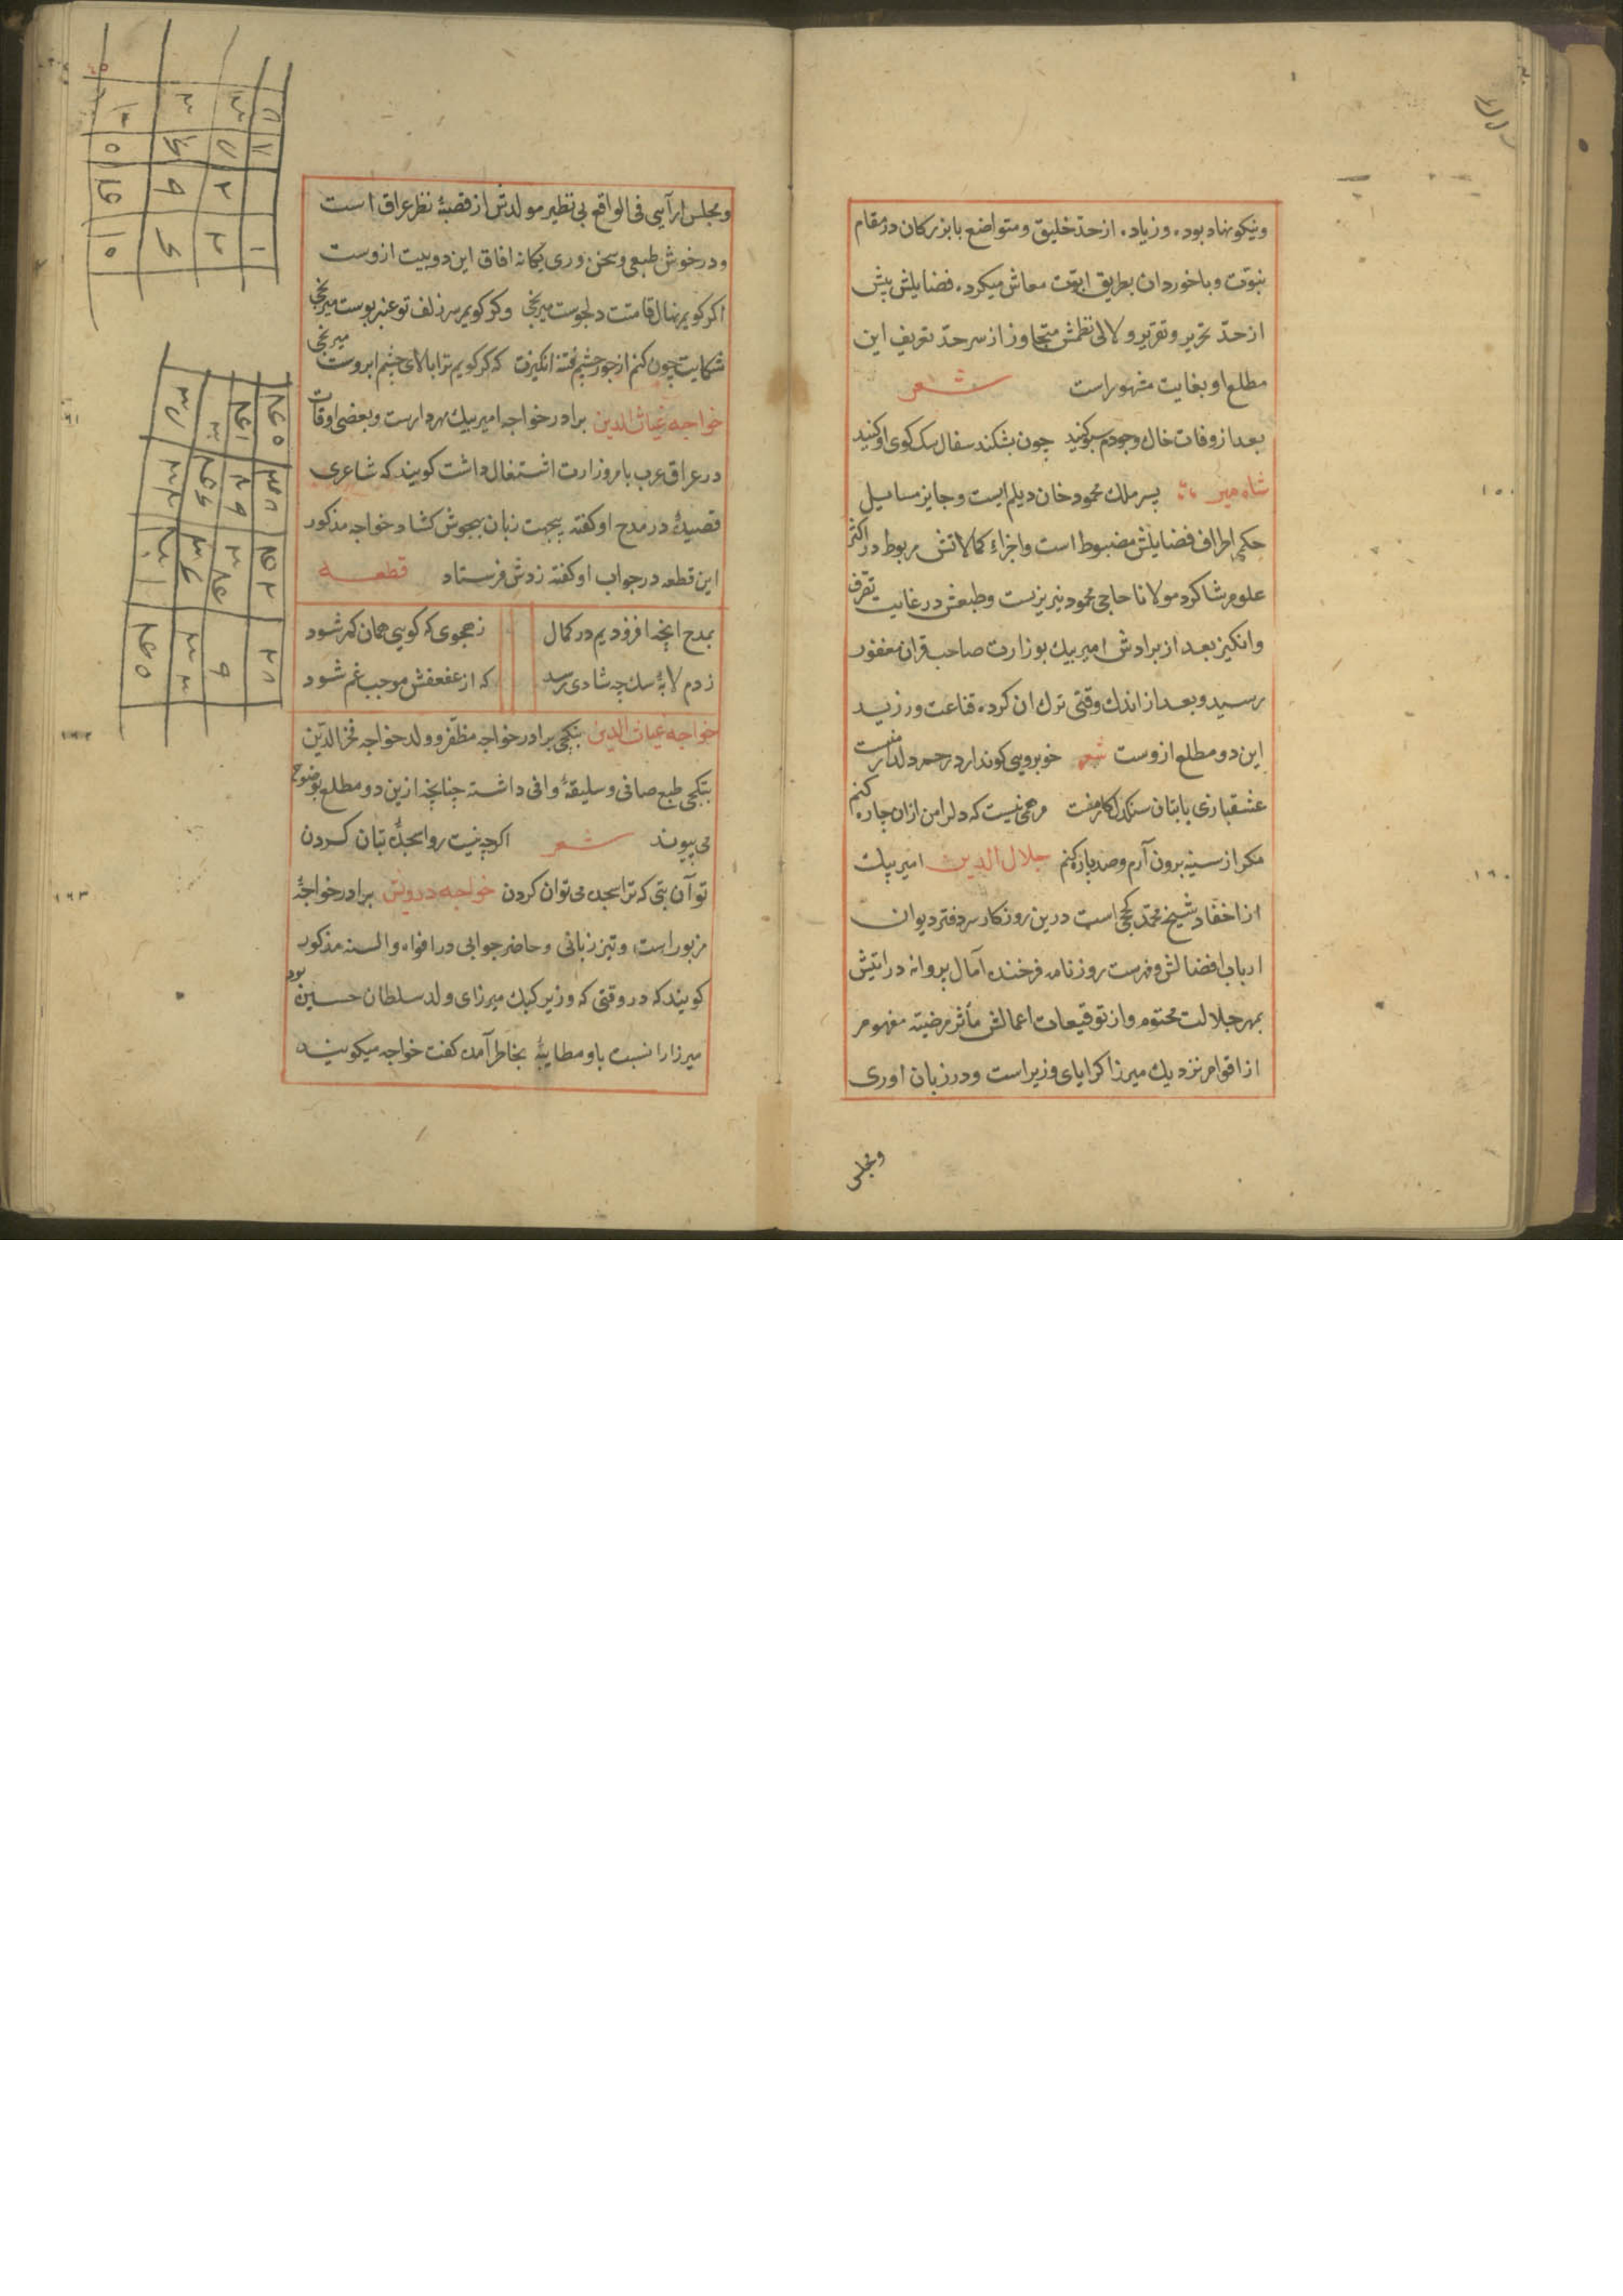 ونیکو نهاد بوده و زیاده از حد خلیق و متواضع با بزرکان در مقام
بنوّت و با خوردان بطریق ابوّت معاش میکرده فضایلش بیش
از حدّ تحریر و تقریر و لالی نظمش متجاوز از سرحدّ تعریف این
مطلع او بغایت مشهور است شعر
بعد از وفات خاک وجودم سبو کنید چون بشکند سفال سک کوی او کنید
شاه میر پسر ملک محمود خان دیلم ایست و جایز مسایل
حکم اطراف فضایلش مضبوط است و اجزاء کمالاتش مربوط در اکثر
علوم شاکرد مولانا حاجی محمود تبریزیست و طبعش در غایت تصرف
وانکیز بعد از برادرش امیر بیک بوزارت صاحب قران مغفور
رسید و بعد از اندک وقتی ترک ان کرده قناعت ورزید
این دو مطلع ازوست شعر خوبرویی کو ندارد رحم دلدار منست
عشقبازی با بتان سنکدل کار منست مرهمی نیست که دل را من ازان چاره کنم
مکر از سینه برون آرم و صد پاره کنم جلال الدین امیر بیک
از احفاد شیخ محمد کججی است درین روزکار سر دفتر دیوان
ارباب افضالش و فهرست روزنامه فرخنده آمال پروانه درایتش
بمهر جلالت مختوم و از توقیعات اعمالش مآثر مرضیته مفهوم
از اقوام نزدیک میرزا کرایای وزیر است و در زبان اوری
ومجلس
ومجلس ارآیی فی الواقع بی نظیر مولدش از قصبهٔ نظر عراق است
ودر خوش طبعی وسخن وری یکانه افاق این دو بیت ازوست
اکر کویم نهال قامتت دلجوست میرنجی وکر کویم سر زلف تو عنبر بوست میرنجی
شکایت چون کنم از جور چشم فتنه انکیزت که کر کویم ترا بالای چشم ابروست میرنجی
خواجه غیاث الدین برادر خواجه امیر بیک مهردارست وبعضی اوقات
در عراق عرب بامر وزارت اشتغال داشت کویند که شاعری
قصیدهٔ در مدح او کفته بیجهت زبان بهجوش کشاد خواجه مذکور
این قطعه در جواب او کفته نزدش فرستاد قطعه
بمدح انچه افزودیم در کمال زهجوی که کویی همان کم شود
زدم لابهٔ سک چه شادی رسد که از عفعفش موجب غم شود
خواجه غیاث الدین بتکچی برادر خواجه مظفر و ولد خواجه فخر الدّین
بتکچی طبع صافی و سلیقهٔ وافی داشته چنانچه ازین دو مطلع بوضوح
می پیوندد شعر اکر چه نیست روا سجدهٔ بتان کردن
تو آن بتی که ترا سجده می توان کردن خواجه درویش برادر خواجهٔ
مزبور است و تیز زبانی و حاضر جوابی در افواه والسنه مذکور
کویند که در وقتی که وزیر کپک میرزای ولد سلطان حسین بود
میرزا را نسبت باو مطایبهٔ بخاطر آمده کفت خواجه میکویند